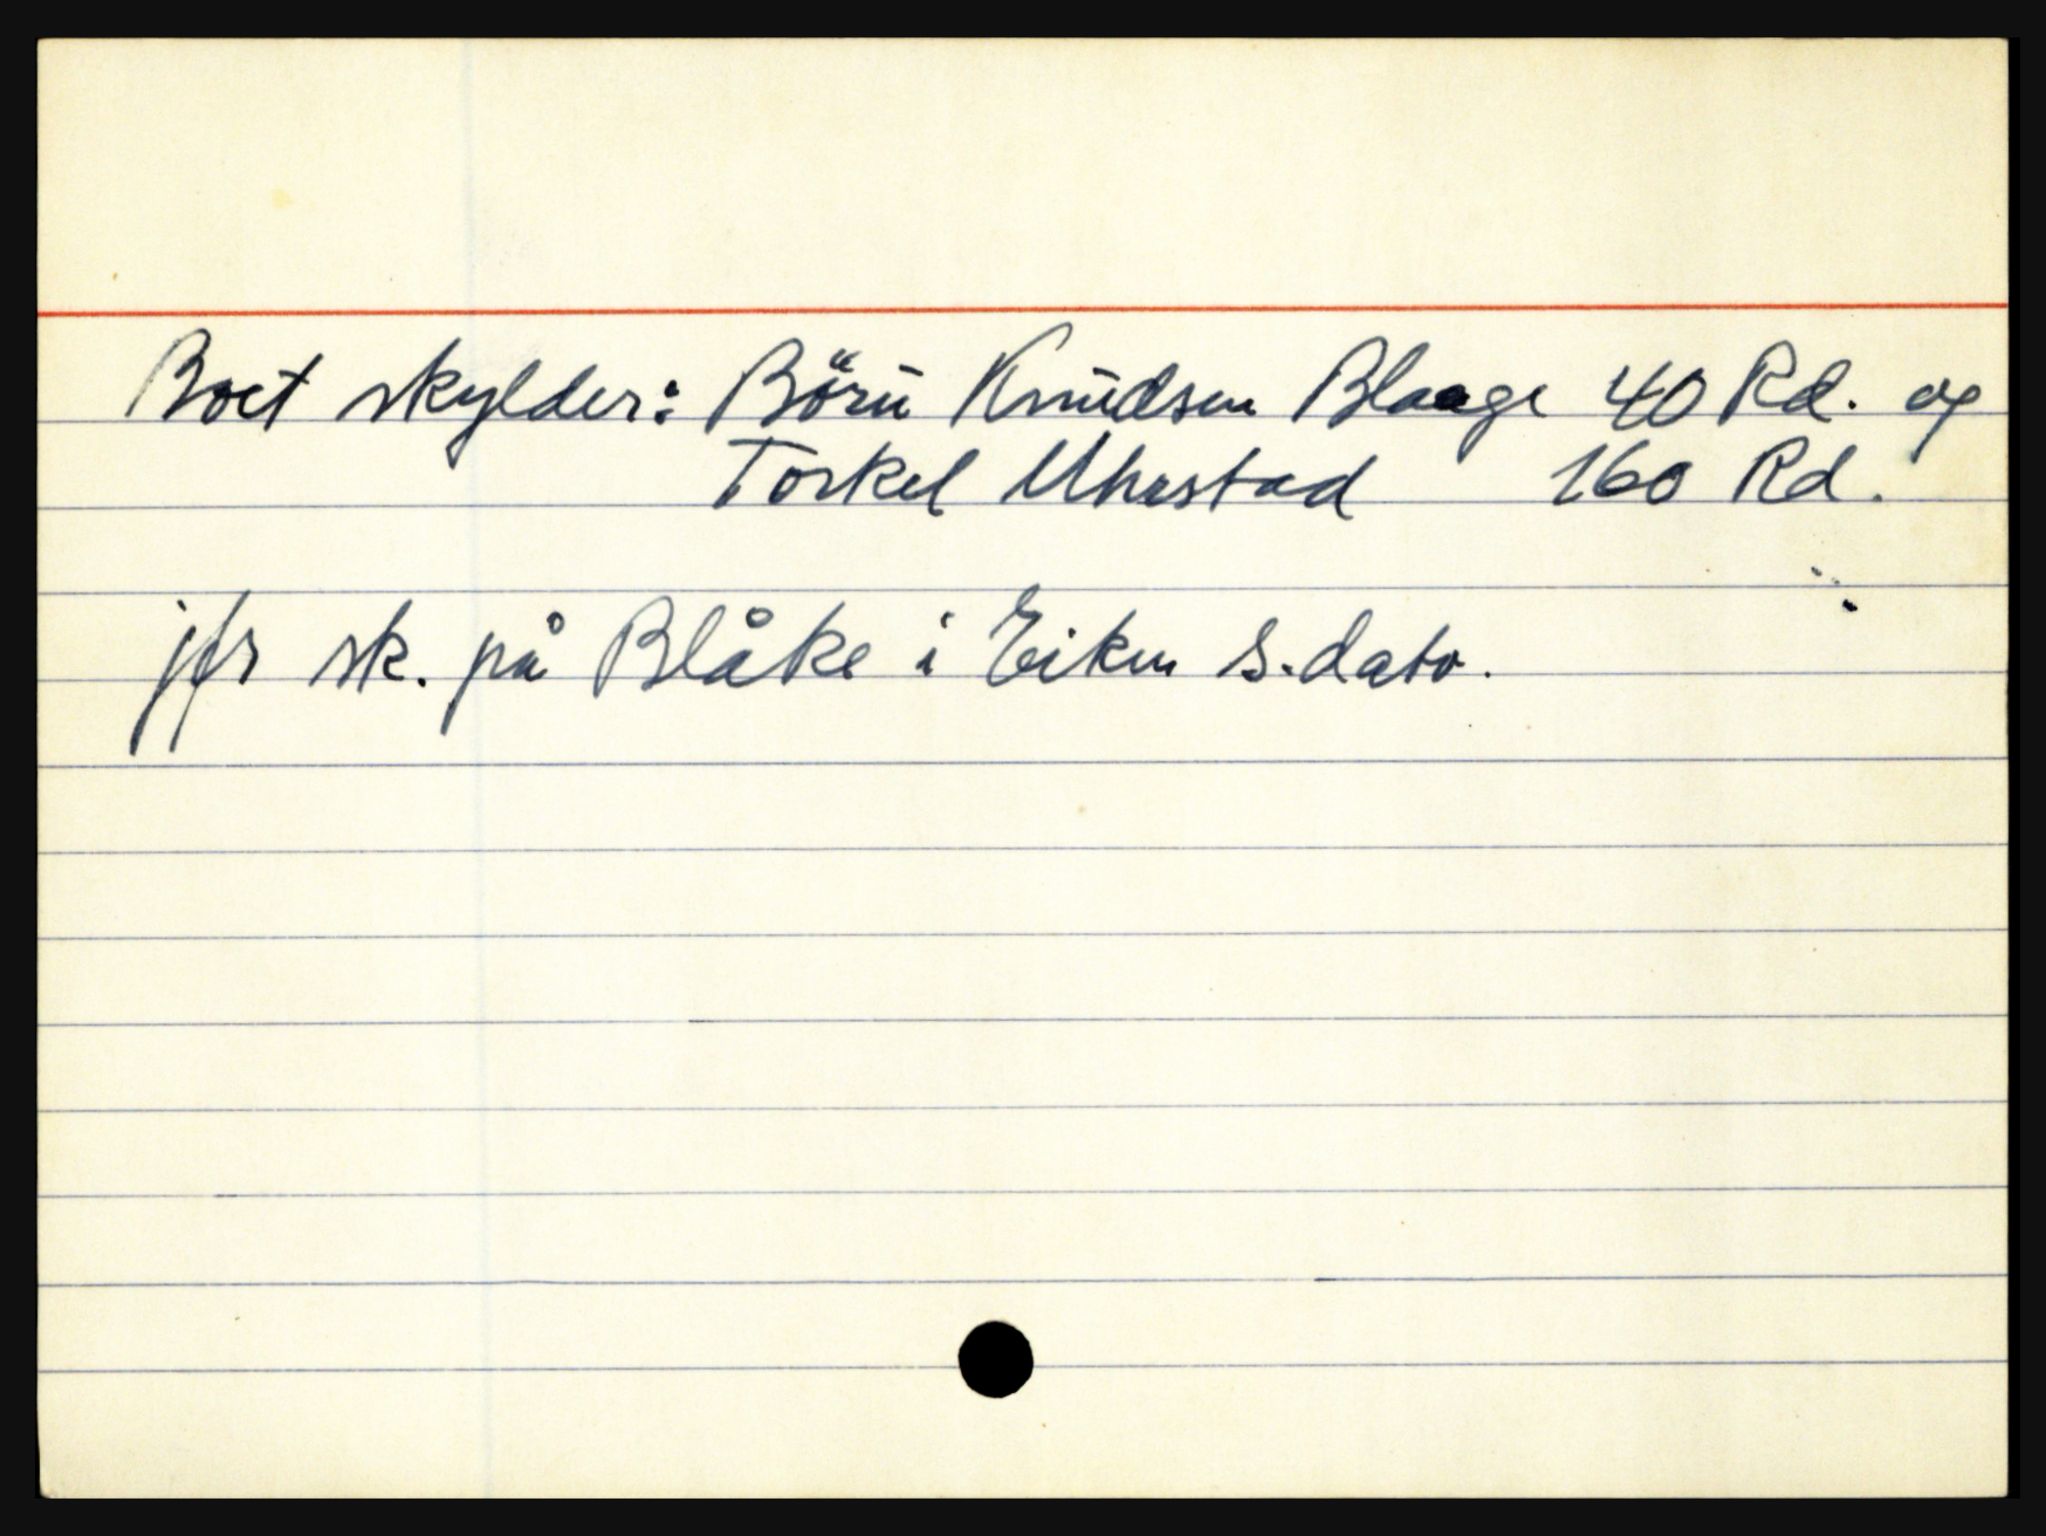 Boet skylder: Börü Knudsen Blaage 40 Rd. og
Torkel Uhrstad 160 Rd.
jfr sk. på Blåke i Eiken s.dato.